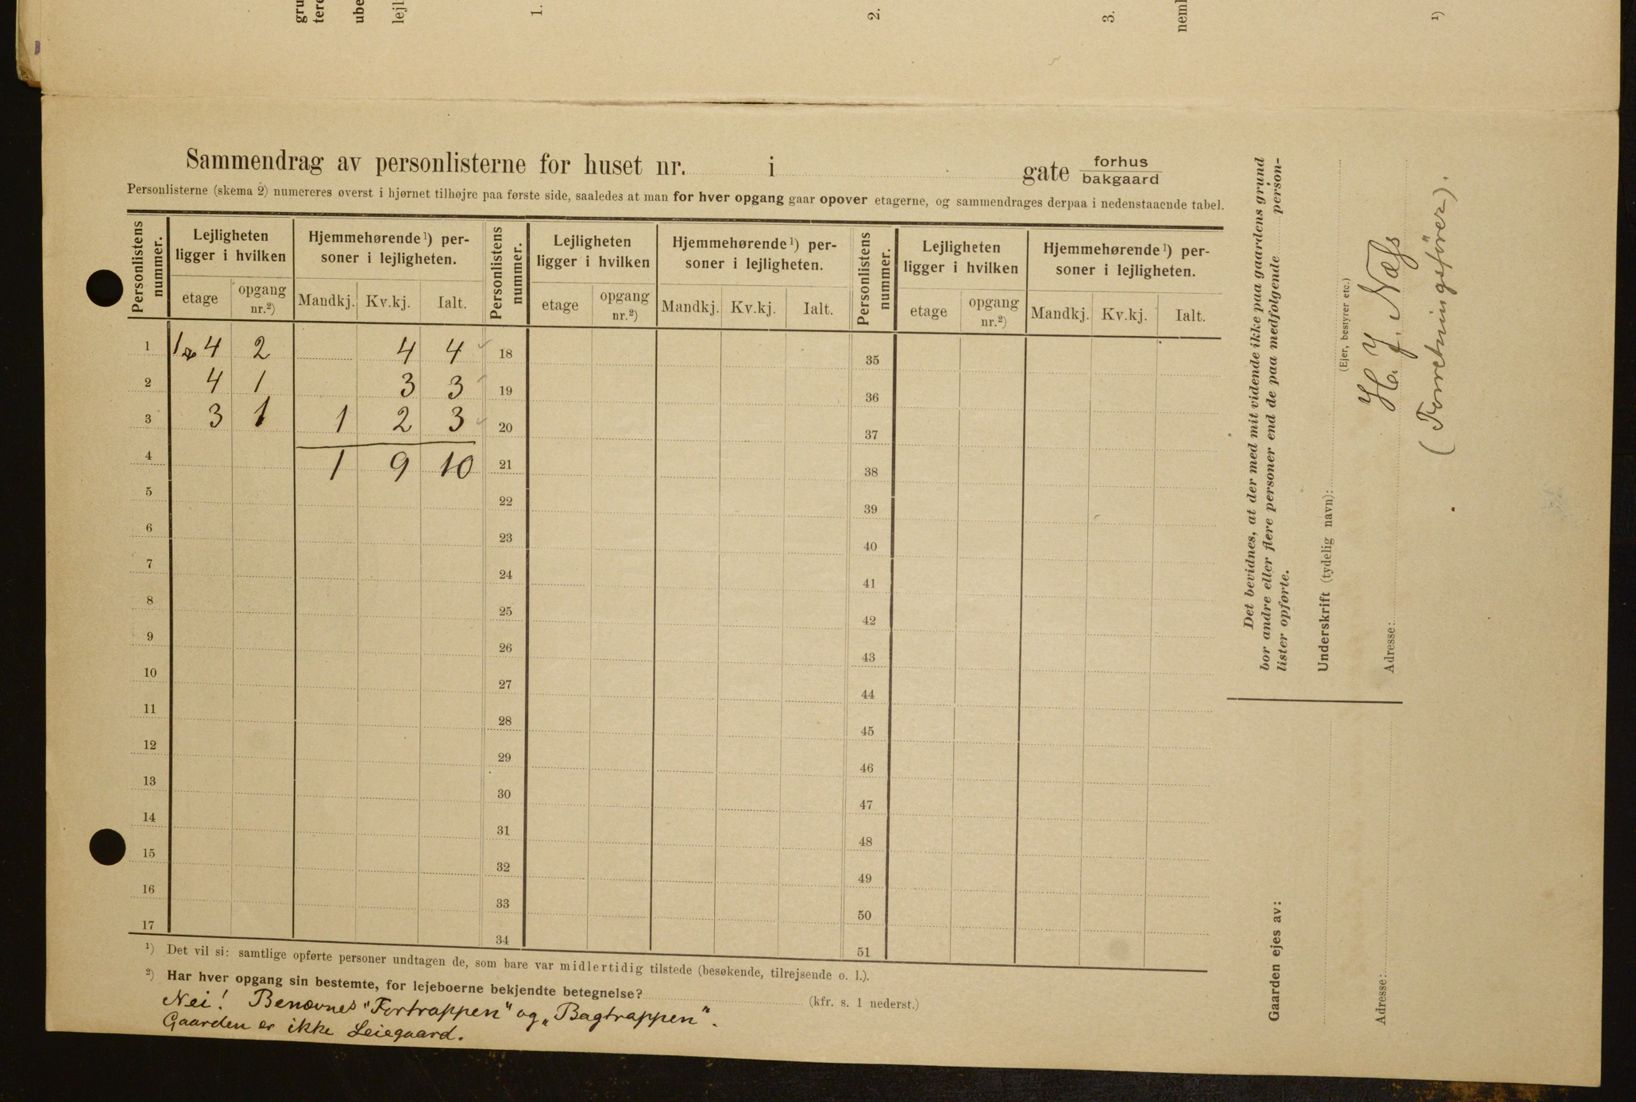 gru
tere
ube
lejl
1.
2.
3.
neml
¹)
Sammendrag av personlisterne for huset nr. i gate forhus
bakgaard
Personlisterne (skema 2) numereres øverst i hjørnet tilhøjre paa første side, saaledes at man for hver opgang gaar opover etagerne, og sammendrages derpaa i nedenstaaende tabel.
Personlistens nummer. Lejligheten ligger i hvilken Hjemmehørende¹) personer i lejligheten. Personlistens nummer. Lejligheten ligger i hvilken Hjemmehørende¹) personer i lejligheten. Personlistens nummer. Lejligheten ligger i hvilken Hjemmehørende¹) personer i lejligheten.
etage opgang nr.²) Mandkj. Kv.kj. Ialt. etage opgang nr.²) Mandkj. Kv.kj. Ialt. etage opgang nr.²) Mandkj. Kv.kj. Ialt.
1 4 2 4 4 18 35
2 4 1 3 3 19 36
3 3 1 1 2 3 20 37
4 1 9 10 21 38
5 22 39
6 23 40
7 24 41
8 25 42
9 26 43
10 27 44
11 28 45
12 29 46
13 30 47
14 31 48
15 32 49
16 33 50
17 34 51
¹) Det vil si: samtlige opførte personer undtagen de, som bare var midlertidig tilstede (besøkende, tilrejsende o. l.).
²) Har hver opgang sin bestemte, for lejeboerne bekjendte betegnelse? (kfr. s. 1 nederst.)
Nei! Benævnes "Fortrappen" og „Bagtrappen".
Gaarden er ikke Leiegaard.
Det bevidnes, at der med mit vidende ikke paa gaardens grund
bor andre eller flere personer end de paa medfølgende person-
lister opførte.
Underskrift (tydelig navn):
(Ejer, bestyrer etc.)
H. J. Næss
Adresse:
(Forretningsfører).
Gaarden ejes av:
Adresse: